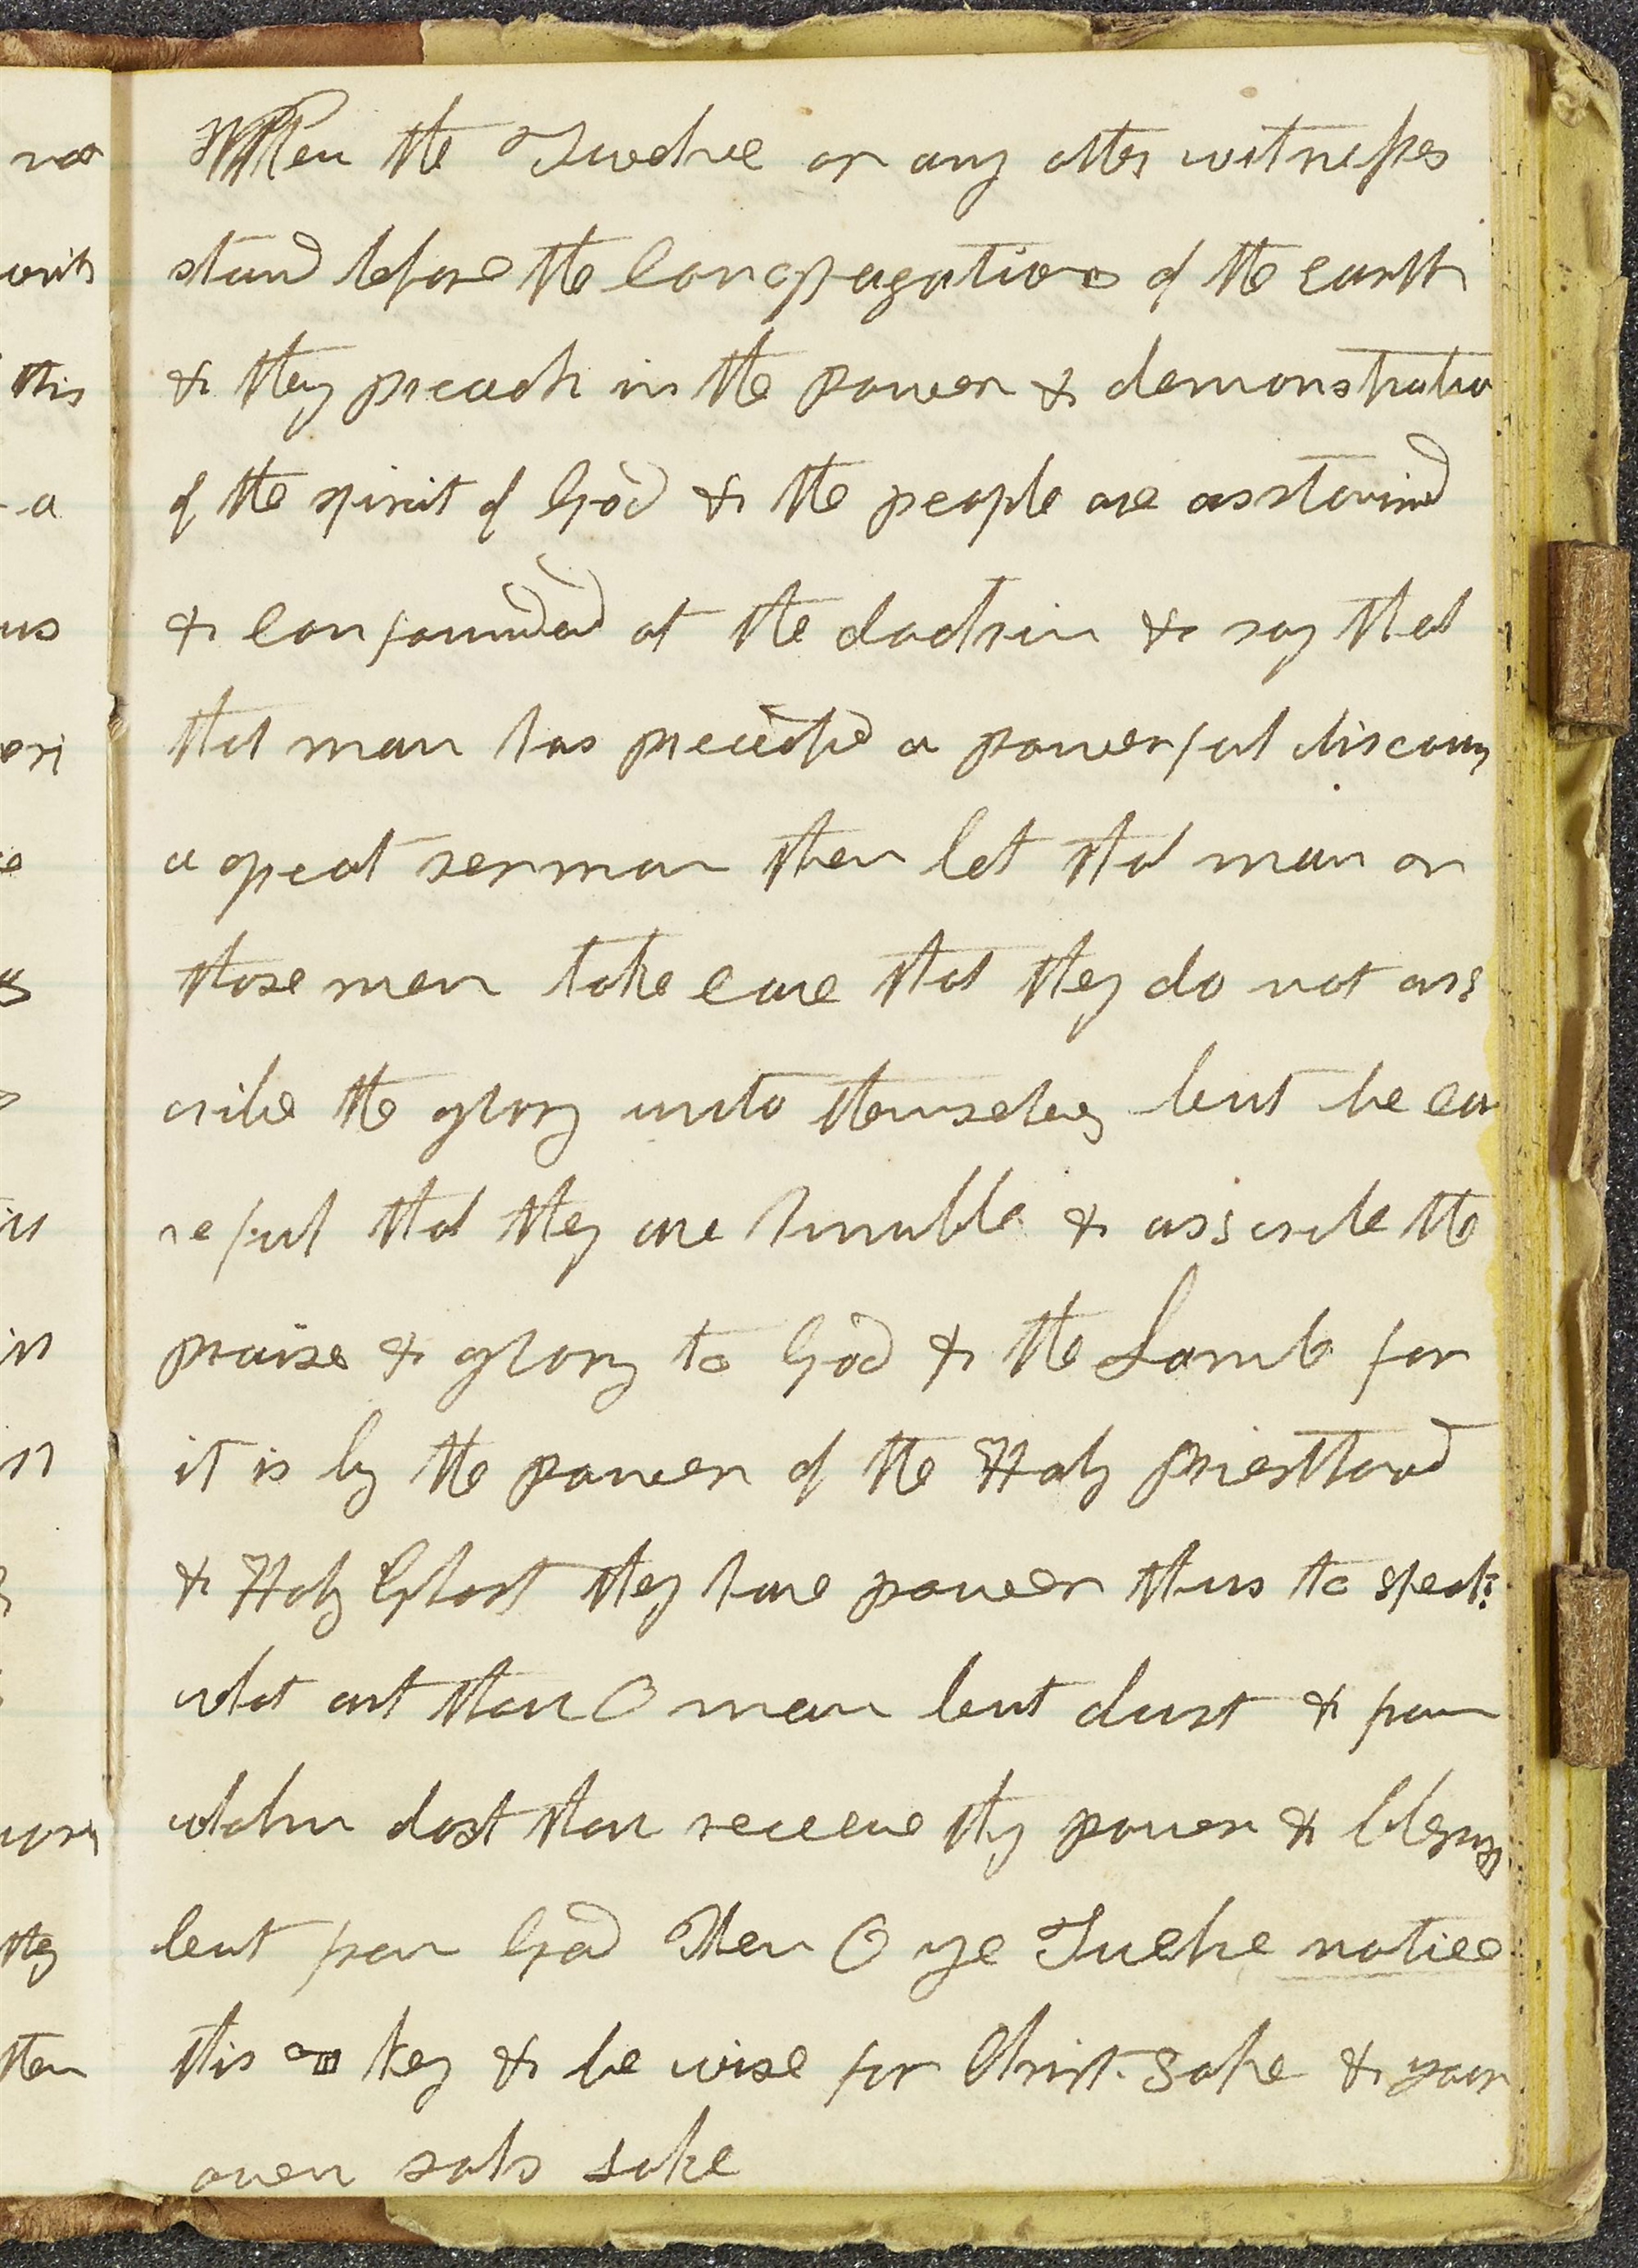 When the Twelve or any other witnesses
stand before the Congregations of the earth
& they preach in the power & demonstratio
of the spirit of God & the people are asstonished
& confounded at the doctrin & say that
that man has preached a powerful discours
a great sermon then let that man or
those men take care that they do not ass
cribe the glory unto themselves but be ca
reful that they are humble & asscribe the
praise & glory to God & the Lamb for
it is by the power of the Holy Priesthood
& Holy Ghost they have power thus to speak
what art thou O man but dust & from
whom dost thou receeve thy power & blessings
but from God Then O ye Twelve notice
this key & be wise for Christ sake & your
own souls sake